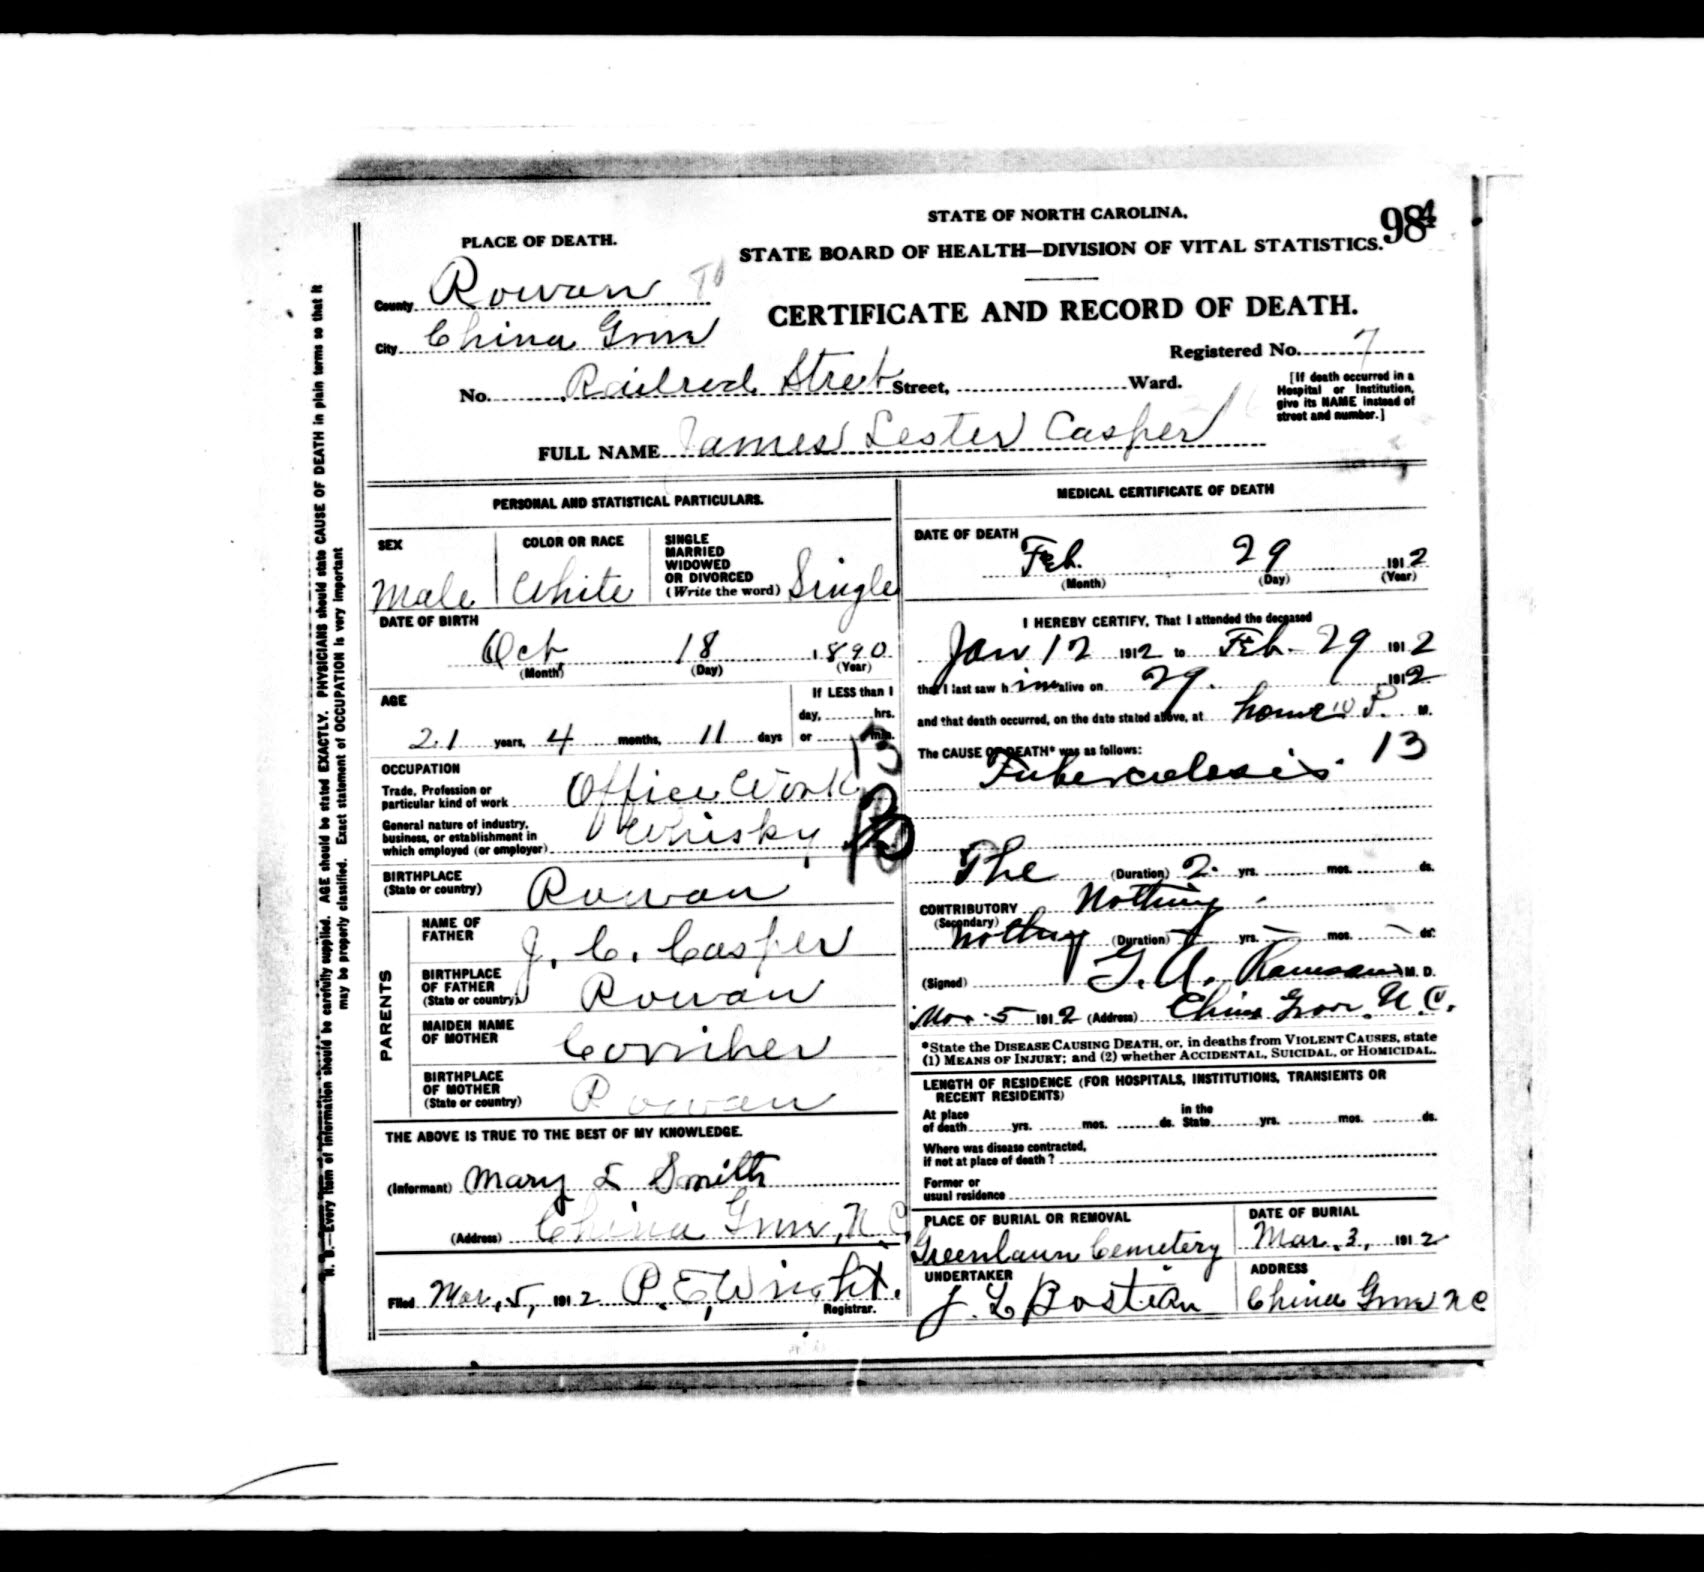 STATE OF NORTH CAROLINA.
984
STATE BOARD OF HEALTH—DIVISION OF VITAL STATISTICS.
CERTIFICATE AND RECORD OF DEATH.
PLACE OF DEATH.
County Rowan
City China Grove
Registered No. 7
No. Railrod Street Street, Ward.
[If death occurred in a
Hospital or Institution,
give its NAME instead of
street and number.]
FULL NAME James Lester Casper
PERSONAL AND STATISTICAL PARTICULARS.
SEX
Male
COLOR OR RACE
White
SINGLE
MARRIED
WIDOWED
OR DIVORCED
(Write the word) Single
DATE OF BIRTH
Oct 18 1890
(Month) (Day) (Year)
AGE
21 years, 4 months, 11 days
If LESS than 1
day, hrs.
or min.
13
OCCUPATION
Trade, Profession or
particular kind of work Office Work
General nature of industry,
business, or establishment in
which employed (or employer) Whisky
BIRTHPLACE
(State or country) Rowan
PARENTS
NAME OF
FATHER J. C. Casper
BIRTHPLACE
OF FATHER
(State or country) Rowan
MAIDEN NAME
OF MOTHER Corriher
BIRTHPLACE
OF MOTHER
(State or country) Rowan
THE ABOVE IS TRUE TO THE BEST OF MY KNOWLEDGE.
(Informant) Mary L Smith
(Address) China Grove, N.C.
Filed Mar. 5, 1912 P. E. Wright.
Registrar.
MEDICAL CERTIFICATE OF DEATH
DATE OF DEATH
Feb. 29 1912
(Month) (Day) (Year)
I HEREBY CERTIFY, That I attended the deceased
Jan 12 1912 to Feb. 29 1912
that I last saw him alive on 29. 1912
and that death occurred, on the date stated above, at home 10 P. M.
The CAUSE OF DEATH* was as follows:
Tuberculosis. 13
The (Duration) 2 yrs. mos. ds.
CONTRIBUTORY Nothing
(Secondary)
nothing (Duration) yrs. mos. ds.
(Signed) G. A. Ramsaur M. D.
Mar 5 1912 (Address) China Grove, N. C.
*State the DISEASE CAUSING DEATH, or, in deaths from VIOLENT CAUSES, state
(1) MEANS OF INJURY; and (2) whether ACCIDENTAL, SUICIDAL, or HOMICIDAL.
LENGTH OF RESIDENCE (FOR HOSPITALS, INSTITUTIONS, TRANSIENTS OR
RECENT RESIDENTS)
At place
of death yrs. mos. ds.
in the
State yrs. mos. ds.
Where was disease contracted,
if not at place of death?
Former or
usual residence
PLACE OF BURIAL OR REMOVAL
Greenlawn Cemetery
DATE OF BURIAL
Mar. 3, 1912
UNDERTAKER
J. L. Bostian
ADDRESS
China Grove N C
N. B.—Every item of information should be carefully supplied. AGE should be stated EXACTLY. PHYSICIANS should state CAUSE OF DEATH in plain terms so that it
may be properly classified. Exact statement of OCCUPATION is very important